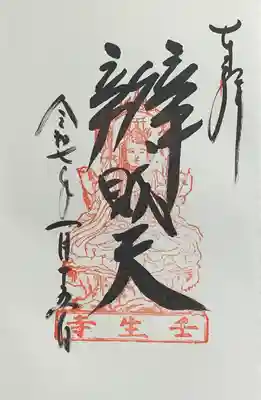 奉拝
辨財天
令和七年一月十五日
壬生寺